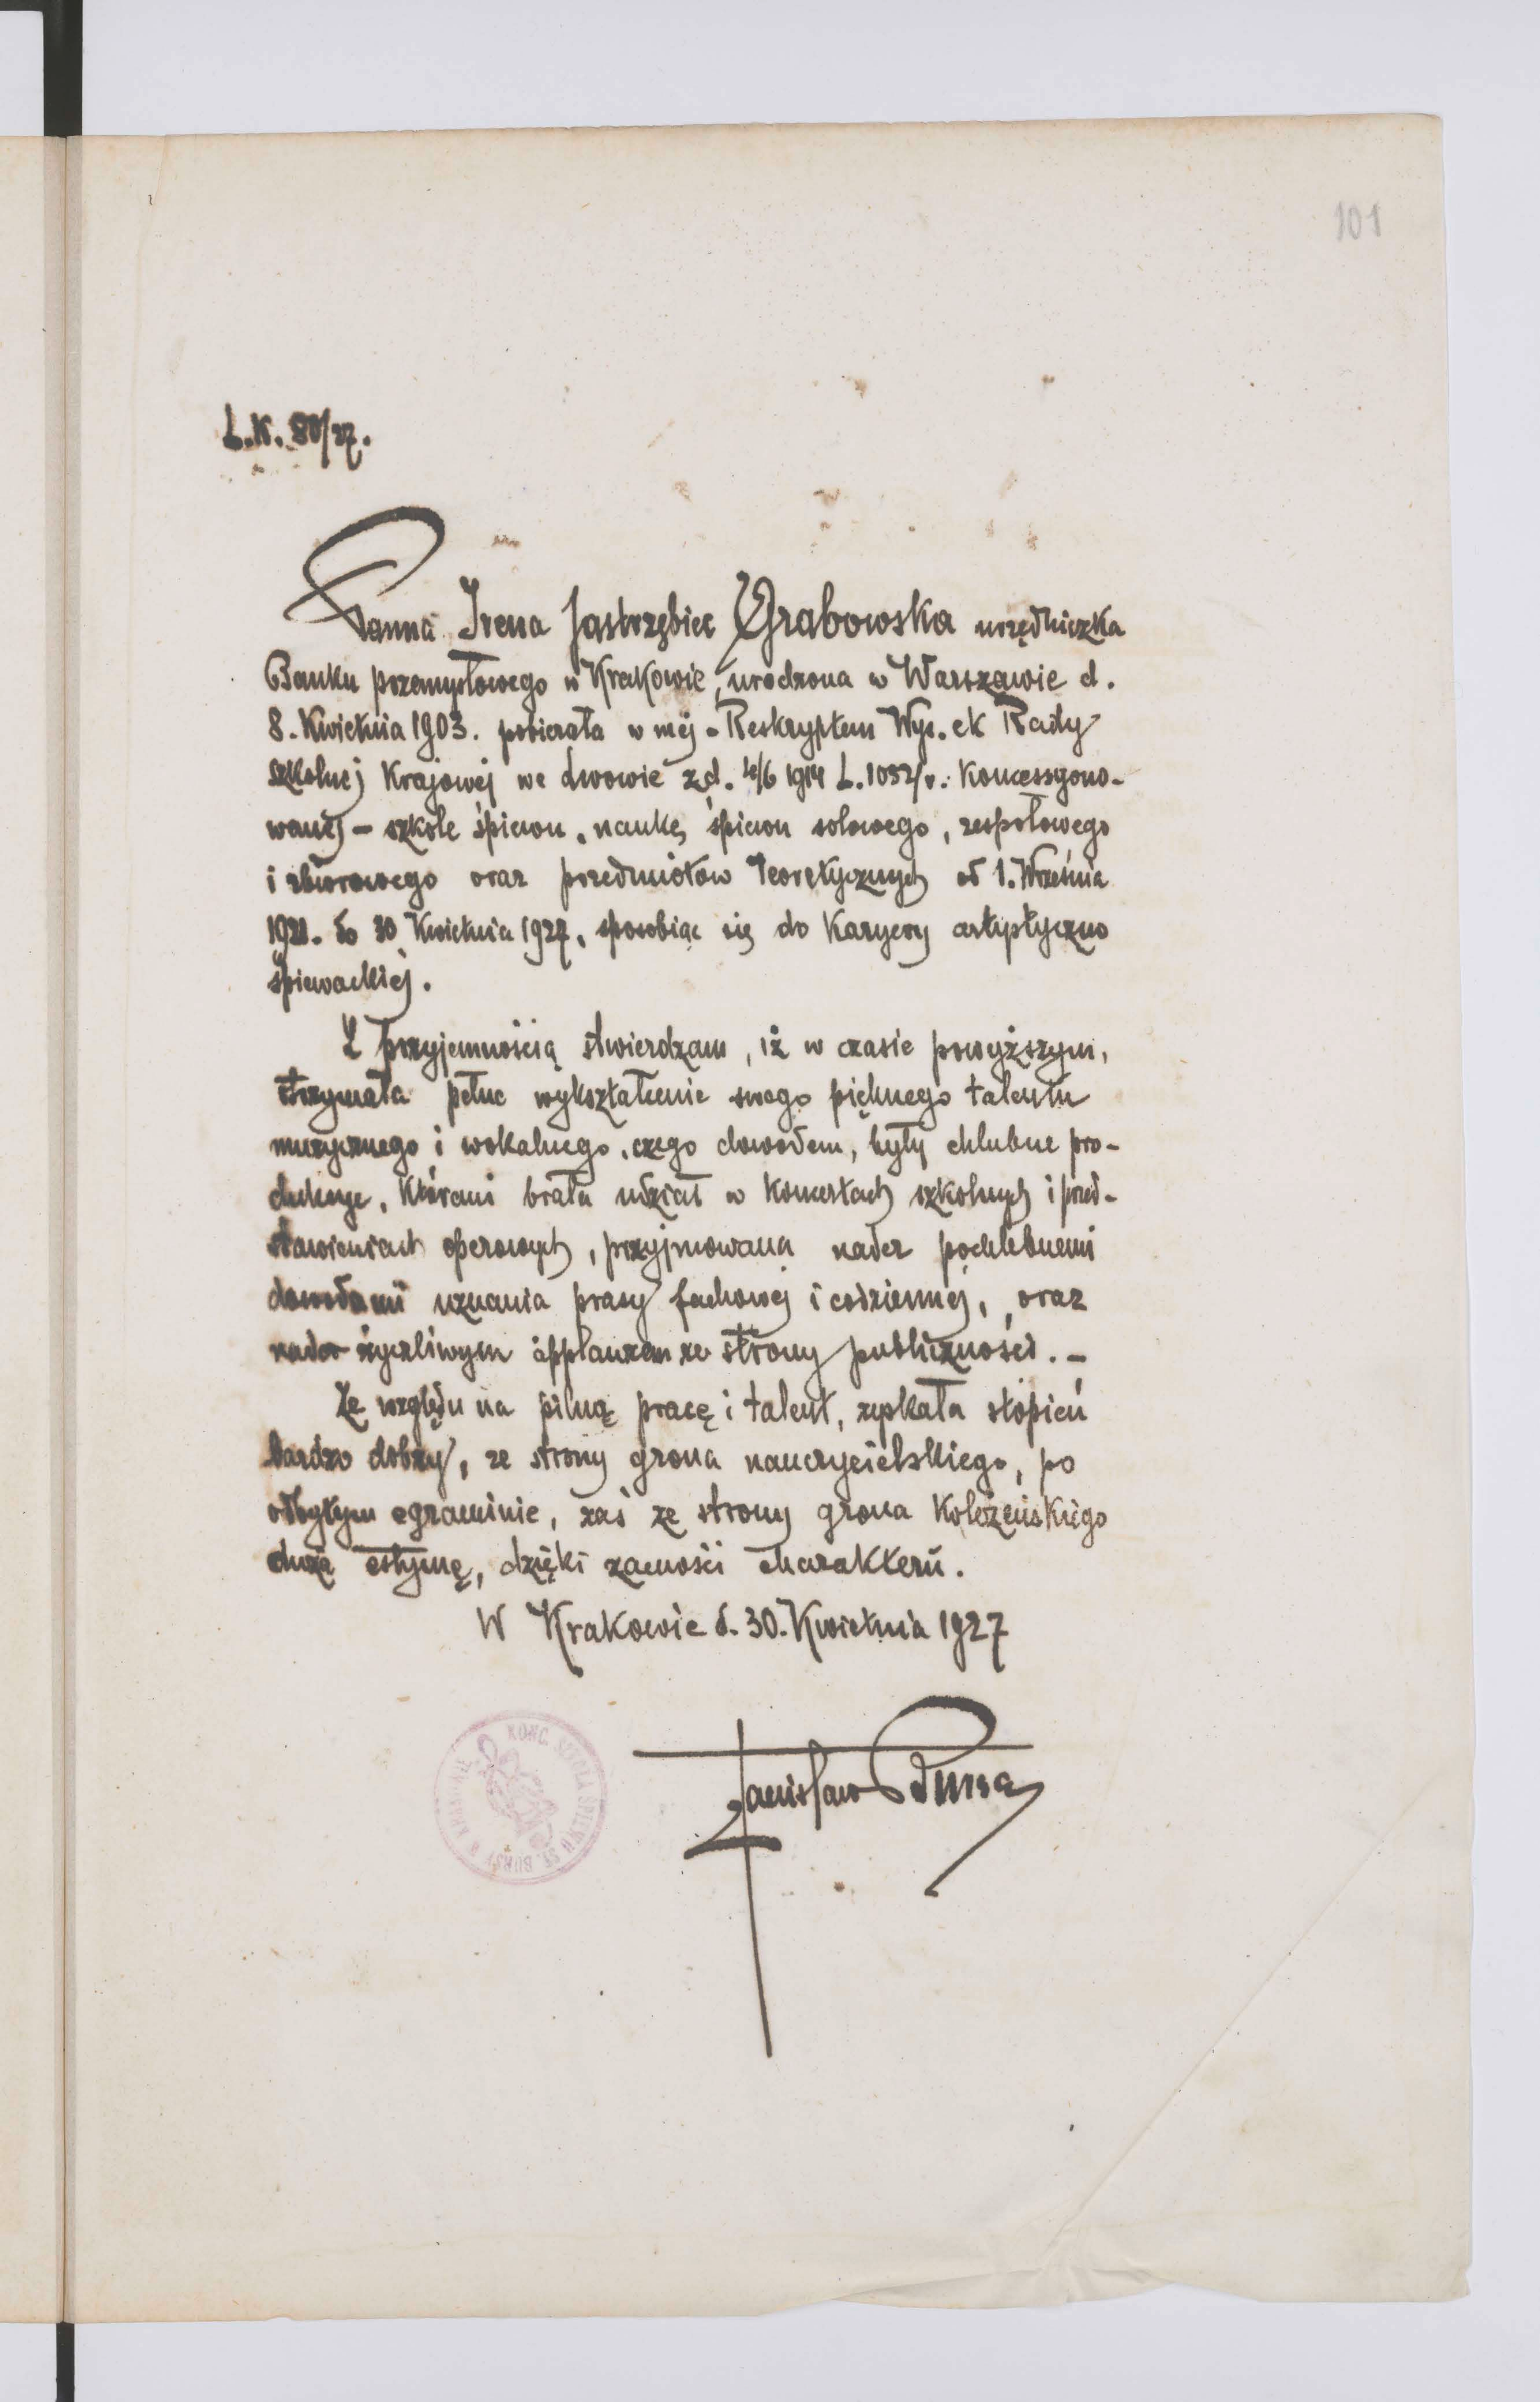 101
L.K. 80/27.
Panna Irena Jastrzębiec Grabowska urzędniczka
Banku przemysłowego w Krakowie, urodzona w Warszawie d.
8. Kwietnia 1903. pobierała w mej - Reskryptem Wys. ck Rady
szkolnej Krajowej we Lwowie z d. 4/6 1914 L. 1032/v. Koncessyono-
wanej - szkole śpiewu, naukę śpiewu solowego, zespołowego
i zbiorowego oraz przedmiotów Teoretycznych od 1. Września
1921. do 30 Kwietnia 1927, sposobiąc się do Karyery artystyczno
śpiewackiej.
Z przyjemnością stwierdzam, iż w czasie powyższym,
otrzymała pełne wykształcenie swego pięknego talentu
muzycznego i wokalnego, czego dowodem, były chlubne pro-
dukcye, któremi brała udział w Koncertach szkolnych i przed-
stawieniach operowych, przyjmowana nader pochlebnemi
dowodami uznania prasy fachowej i codziennej, oraz
nader życzliwym applauzem ze strony publiczności. -
Ze względu na pilną pracę i talent, zyskała stopień
bardzo dobry, ze strony grona nauczycielskiego, po
odbytym egzaminie, zaś ze strony grona Koleżeńskiego
dużą estymę, dzięki zacności charakteru.
W Krakowie d. 30. Kwietnia 1927
Stanisław Bursa
KONC. SZKOŁA ŚPIEWU ST. BURSY W KRAKOWIE